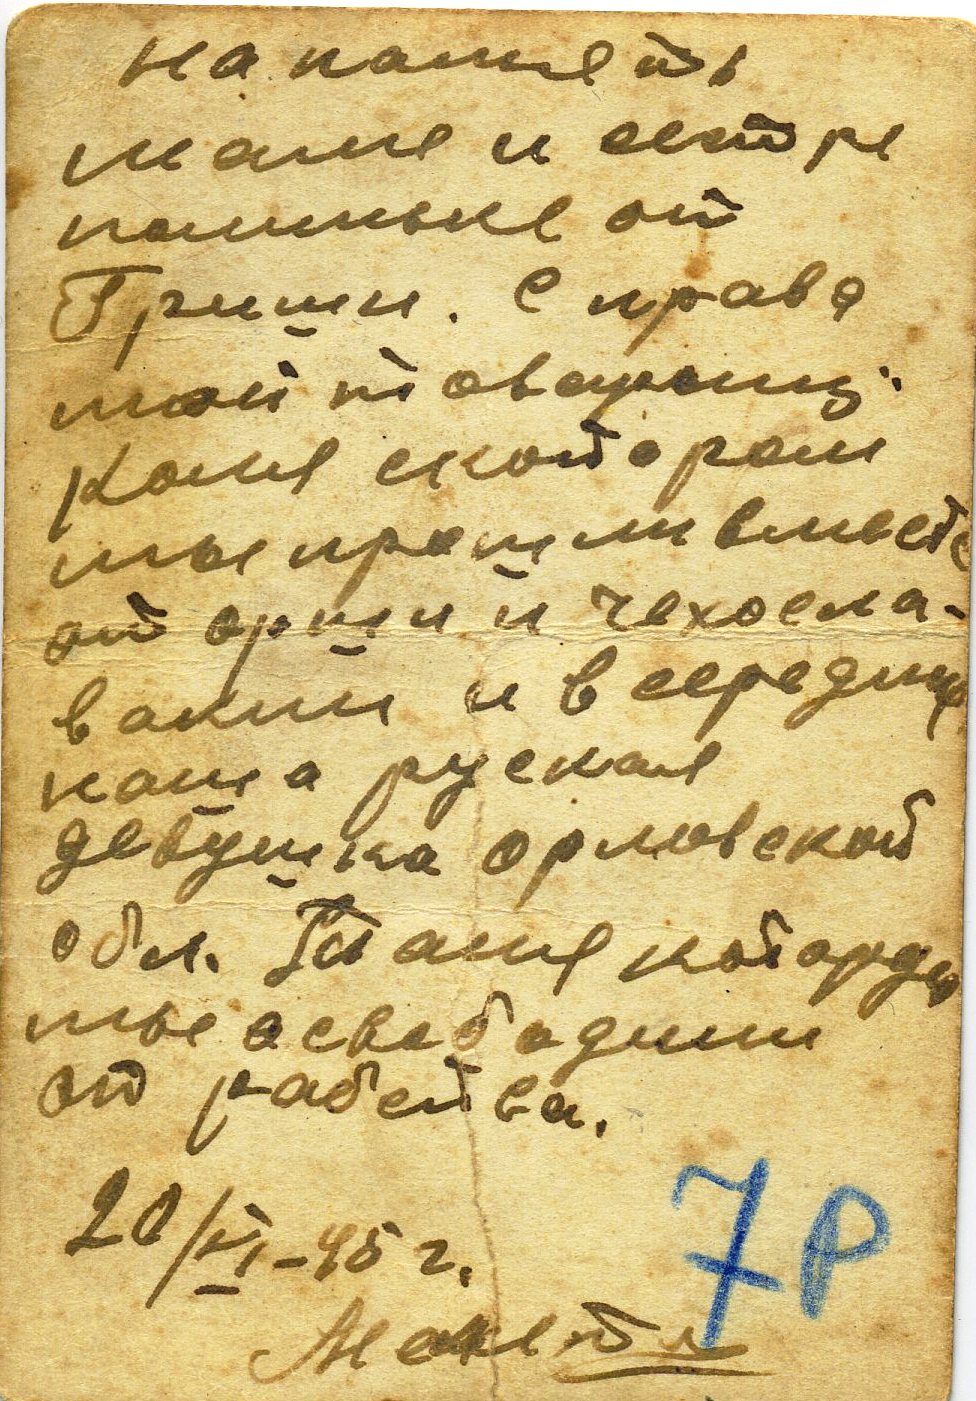 на память
маме и сестре
полиньке от
Гриши. Справа
мой товарищ.
Коля скотором
мы прошли вместе
от орши и чехосла-
вакии и в середине
наша руская
девушка орловской
обл. Таня которую
мы асвабадили
от рабства.
20/VI-45 г.
7Р